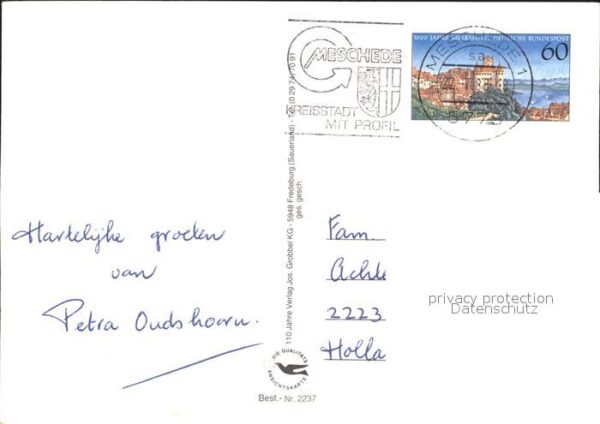 MESCHEDE
KREISSTADT
MIT PROFIL
1000 JAHRE MEERSBURG, DEUTSCHE BUNDESPOST
60
MESCHEDE 1
5778
Hartelijke groeten
van
Petra Oudshoorn.
110 Jahre Verlag Jos. Grobbel KG - 5948 Fredeburg (Sauerland) - Tel. (0 29 74) 70 91
ges. gesch.
Fam.
Achte
2223
Holla
privacy protection
Datenschutz
DIE QUALITÄTS
ANSICHTSKARTE
Best.- Nr. 2237